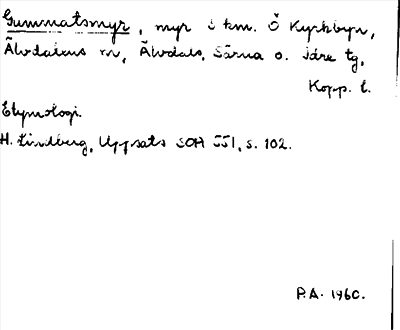 Gummatsmyr, myr i km. Ö Kyrkbyn,
Älvdalens sn, Älvdals, Särna o. Idre tg,
Kopp. l.
Etymologi.
H. Lindberg, Uppsats SOH 551, s. 102.
P.A. 1960.